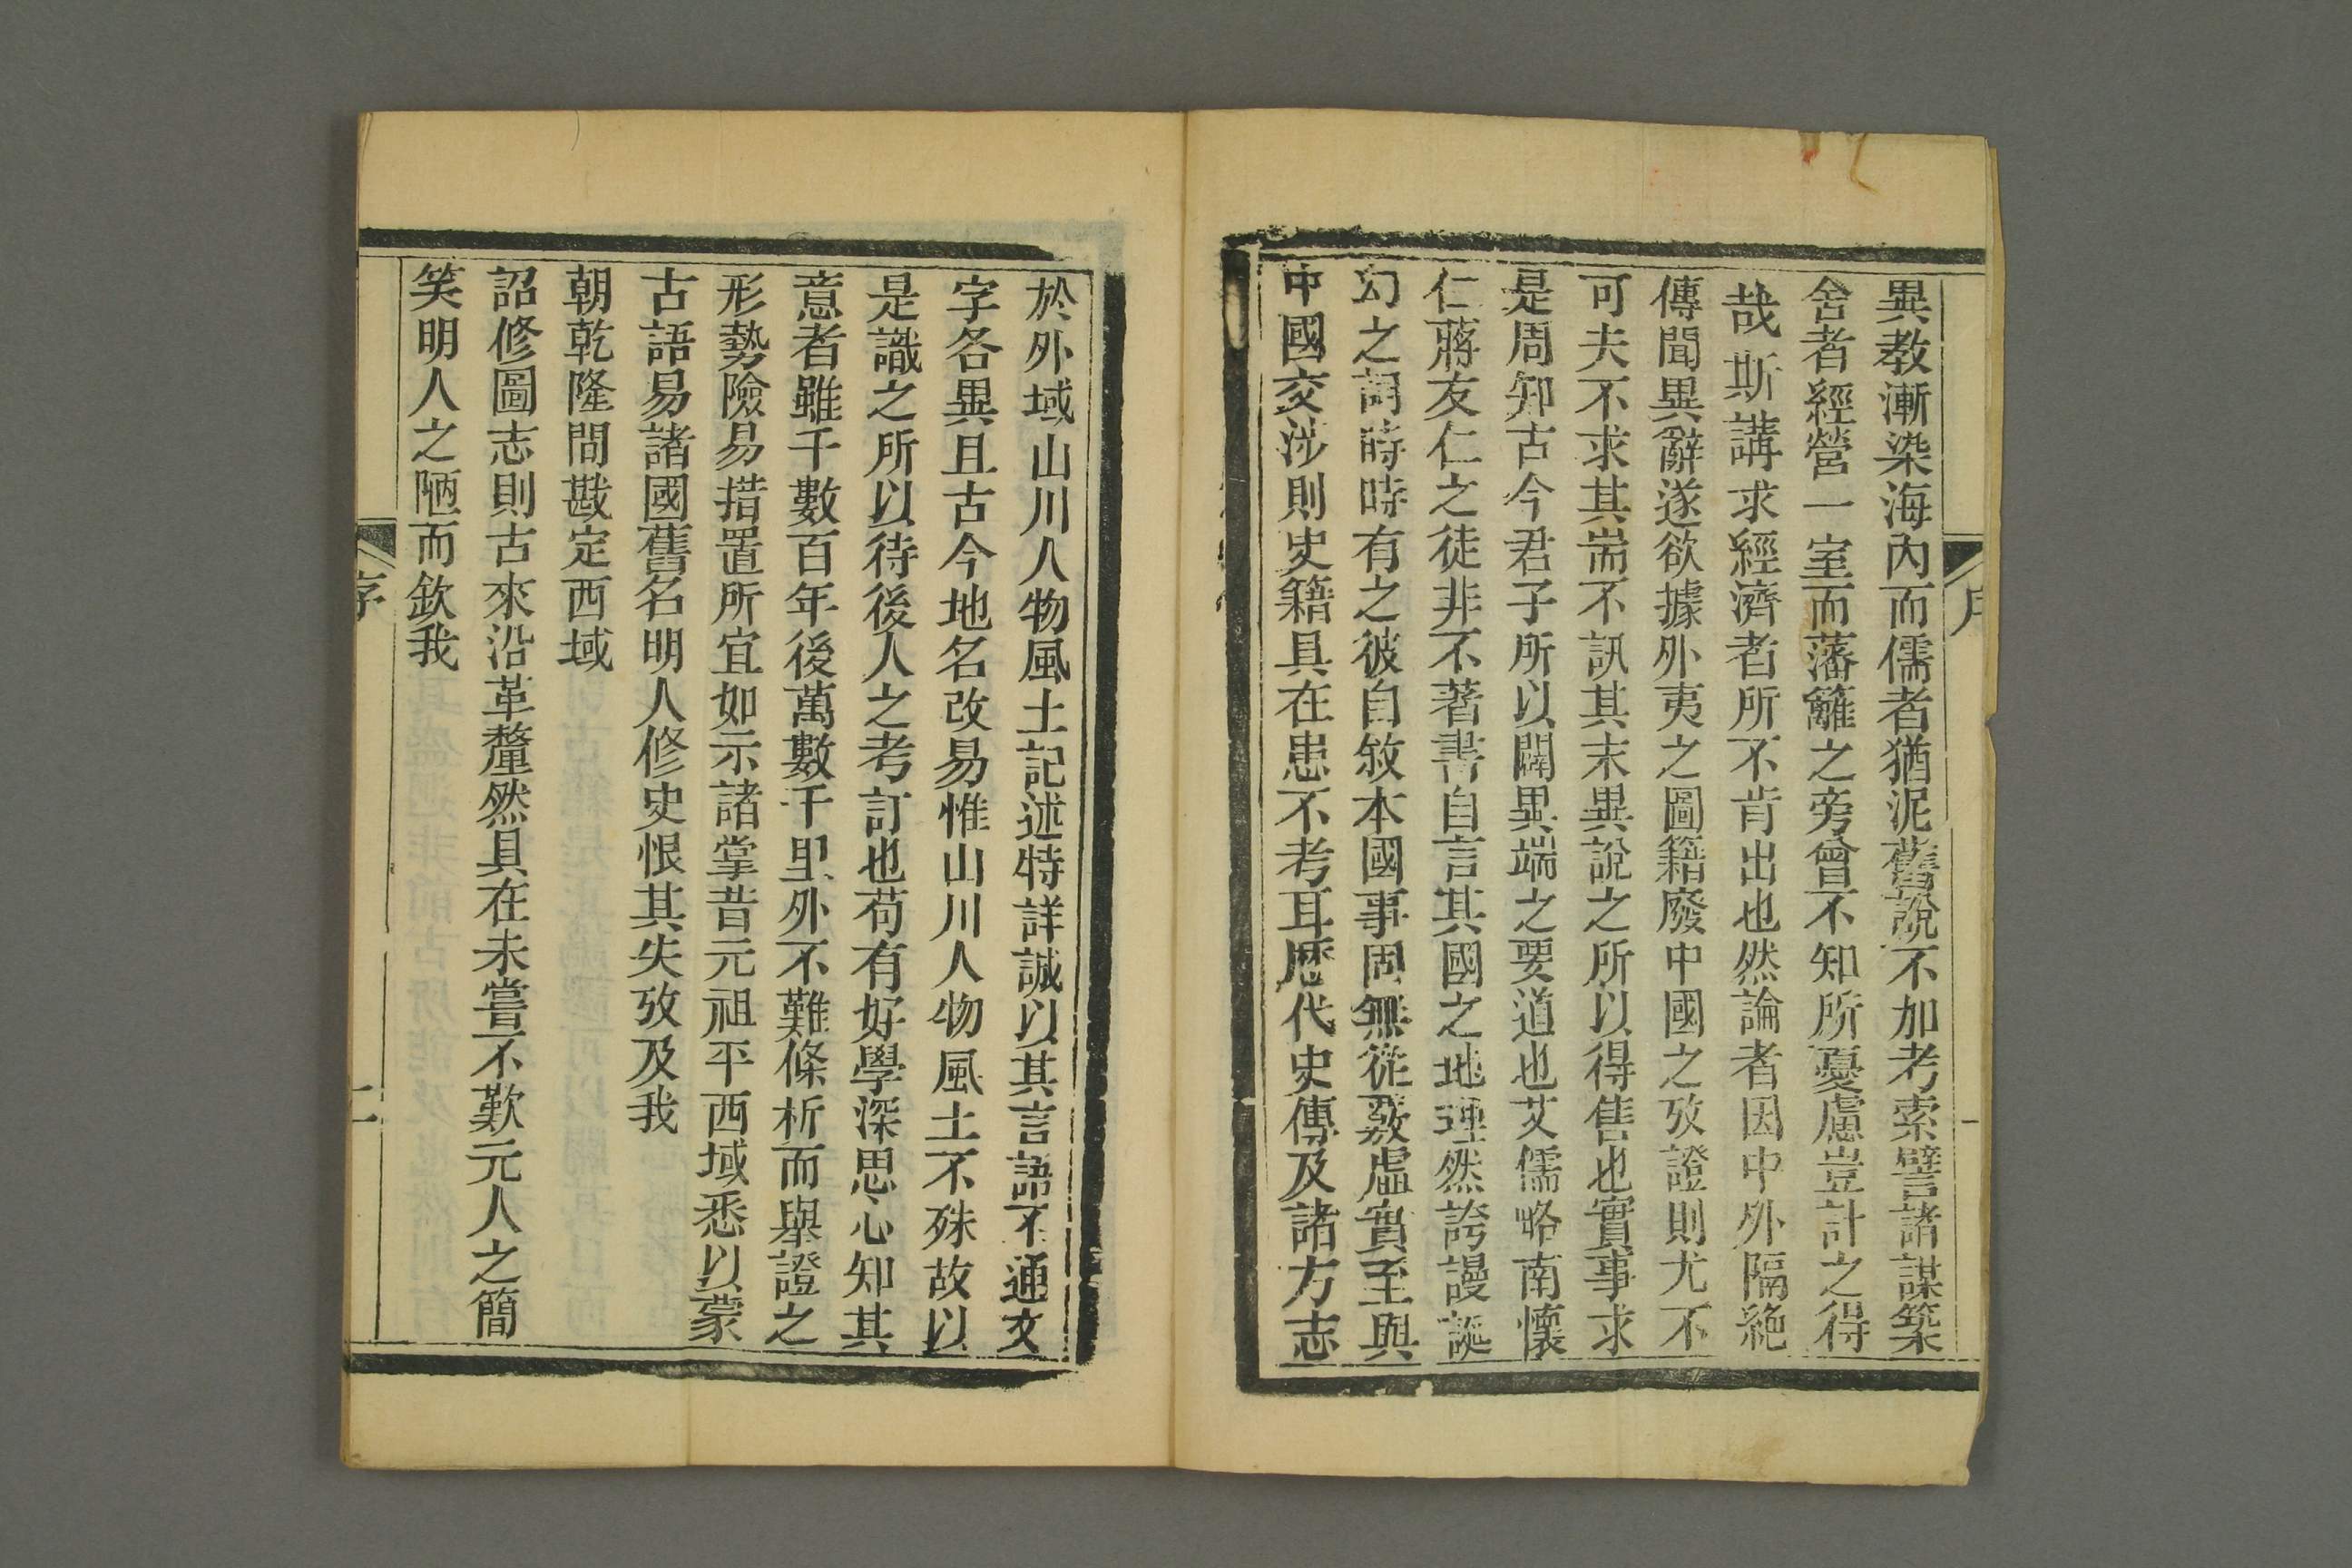 異教漸染海內而儒者猶泥舊說不加考索譬諸謀築
舍者經營一室而藩籬之旁曾不知所憂慮豈計之得
哉斯講求經濟者所不肯出也然論者因中外隔絶
傳聞異辭遂欲據外夷之圖籍廢中國之攷證則尤不
可夫不求其耑不訊其末異說之所以得售也實事求
是周知古今君子所以闢異端之要道也艾儒略南懷
仁蔣友仁之徒非不著書自言其國之地理然誇謾誕
幻之詞時時有之彼自敘本國事固無從覈虛實至與
中國交涉則史籍具在患不考耳歷代史傳及諸方志
於外域山川人物風土記述特詳誠以其言語不通文
字各異且古今地名改易惟山川人物風土不殊故以
是識之所以待後人之考訂也苟有好學深思心知其
意者雖千數百年後萬數千里外不難條析而舉證之
形勢險易措置所宜如示諸掌昔元祖平西域悉以蒙
古語易諸國舊名明人修史恨其失攷及我
朝乾隆間戡定西域
詔修圖志則古來沿革釐然具在未嘗不歎元人之簡
笑明人之陋而欽我
序
二